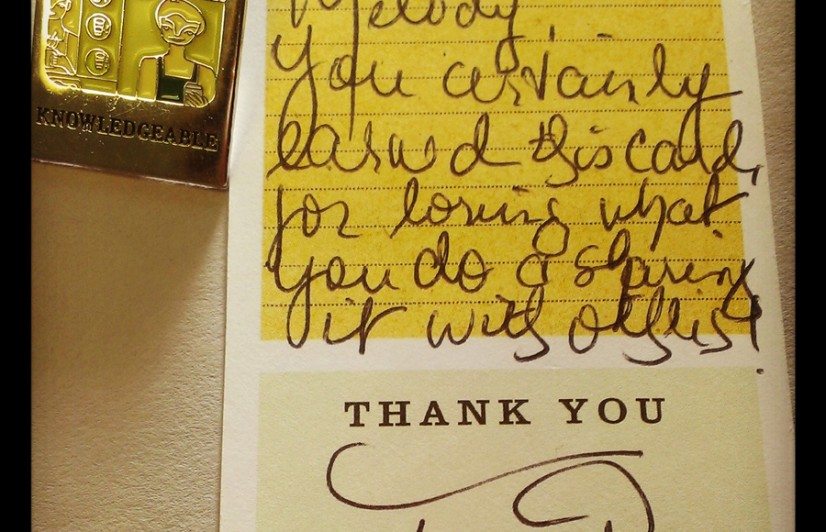 KNOWLEDGEABLE
Melody,
You certainly
earned this card,
for loving what
you do & sharing
it with others!
THANK YOU